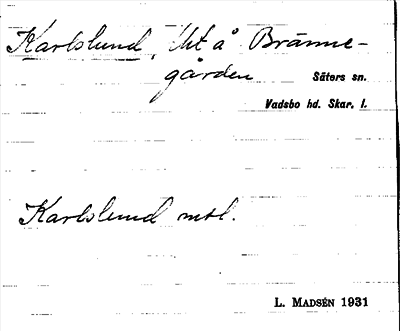 Karlslund, lht å Bränne-
gården
Säters sn.
Vadsbo hd. Skar. l.
Karlslund mtl.
L. MADSÉN 1931